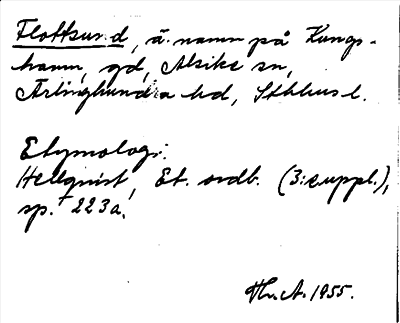 Flottsund, ä. namn på Kungs-
hamn, gd, Alsike sn,
Ärlinghundra hd, Sthlms l.
Etymologi:
Hellquist, Et. ordb. (3: suppl.),
sp. 223a.
1955.